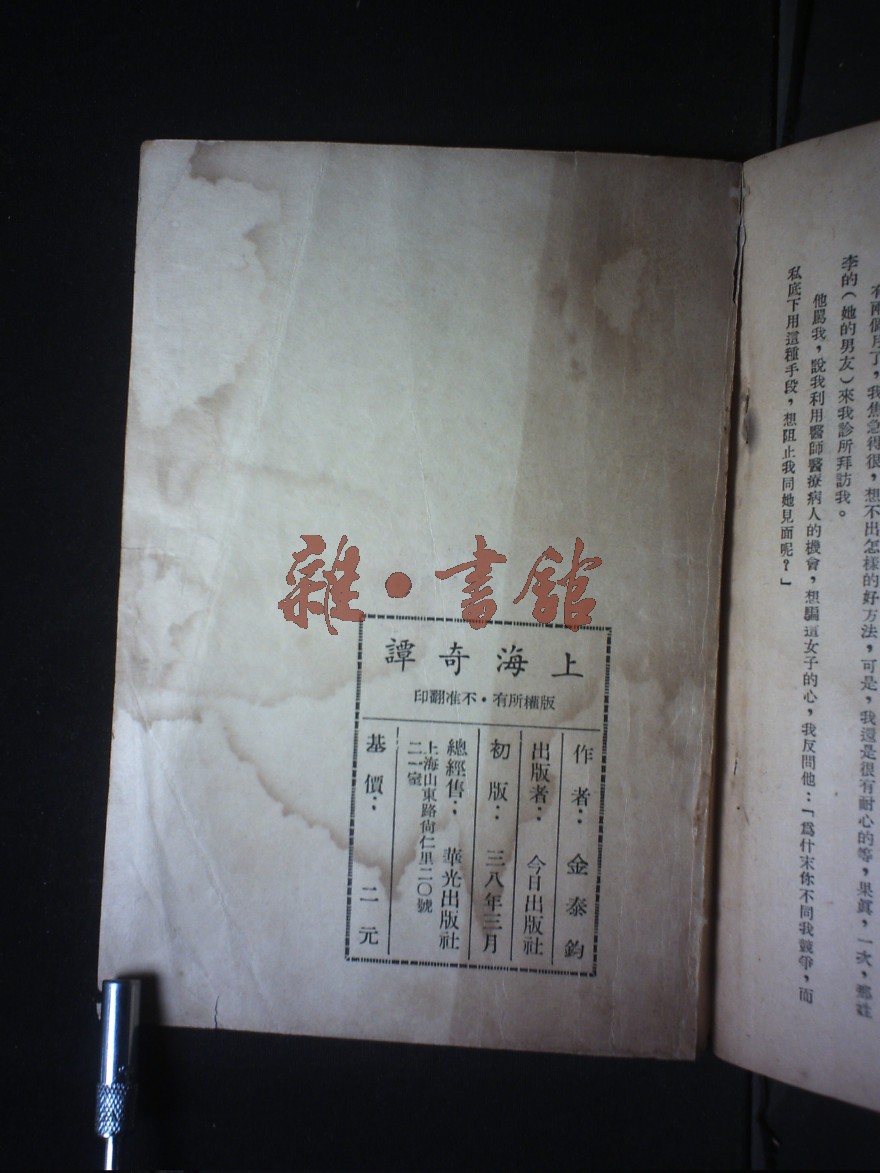 有兩個月了，我焦急得很，想不出怎樣的好方法，可是，我還是很有耐心的等，果眞，一次，那姓
李的（她的男友）來我診所拜訪我。
他罵我，說我利用醫師醫療病人的機會，想騙這女子的心，我反問他：「爲什末你不同我競爭，而
私底下用這種手段，想阻止我同她見面呢？」
雜·書館
上海奇譚
版權所有·不准翻印
作者：金泰鈞
出版者：今日出版社
初版：三八年三月
總經售：華光出版社
上海山東路尙仁里二〇號
二一室
基價：二元